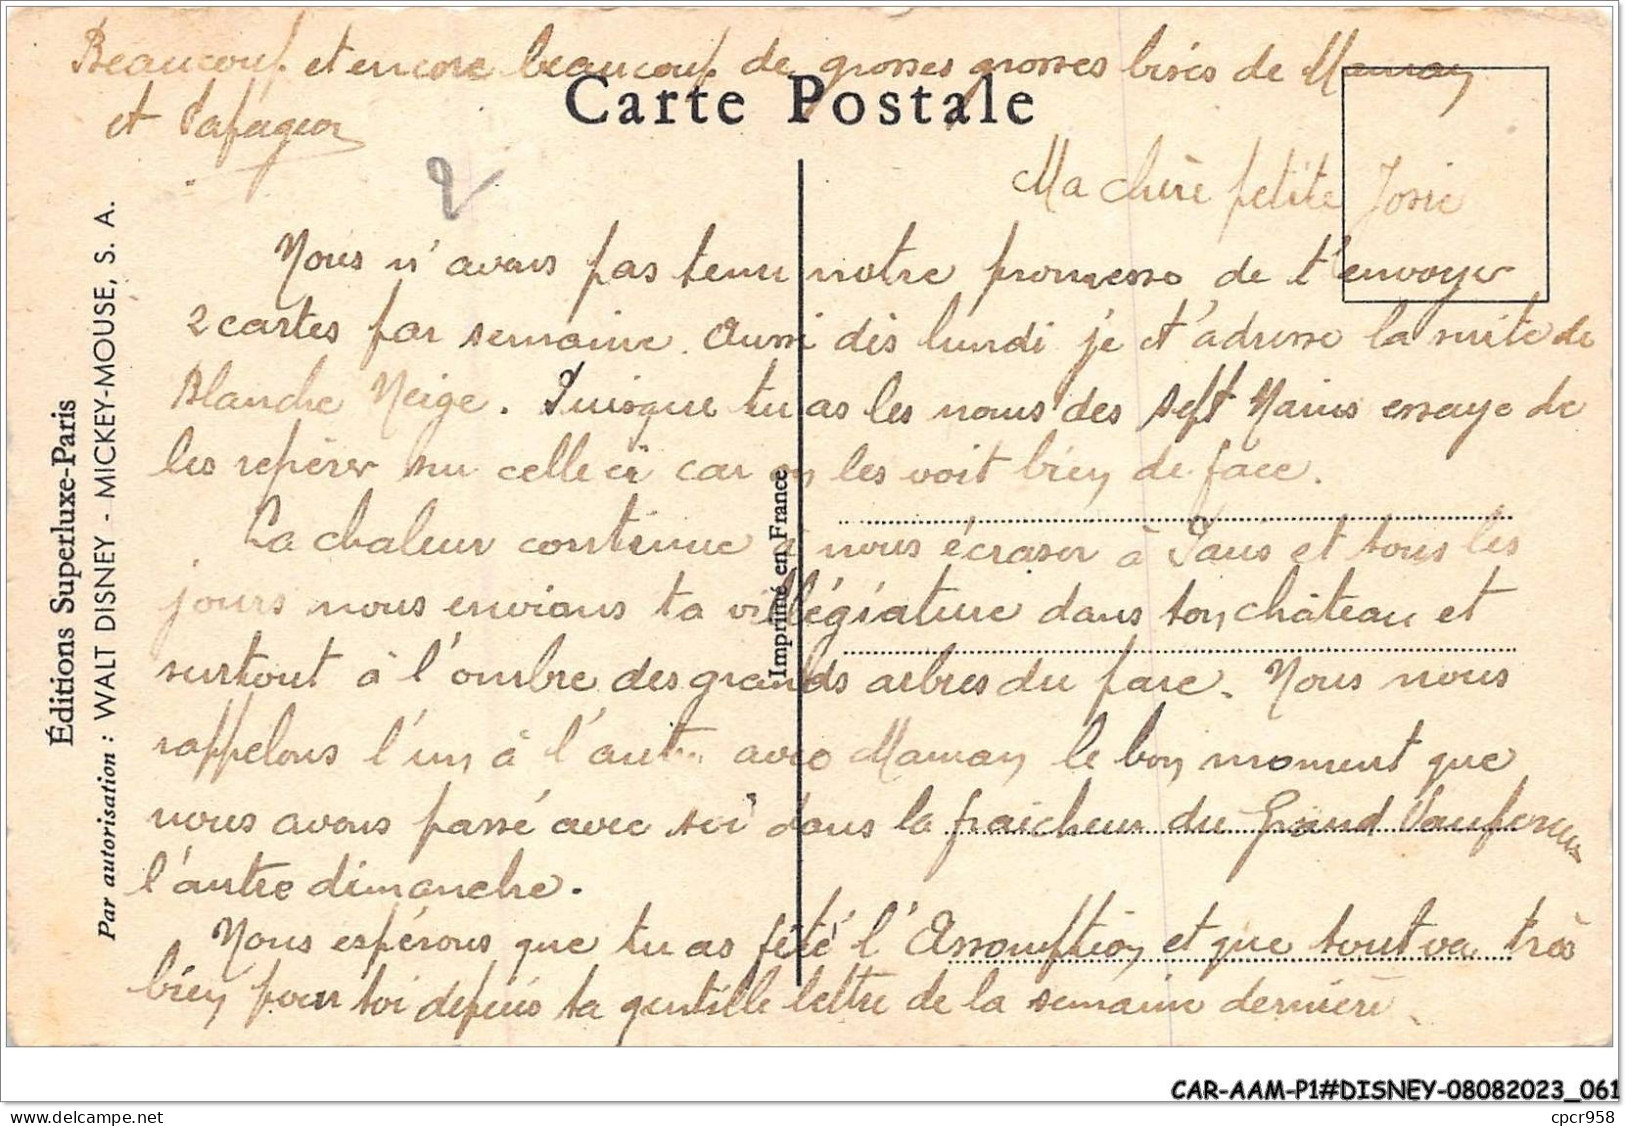 Beaucoup et encore beaucoup de grosses grosses bises de Maman
et
Carte Postale
Ma chère petite Josie
Nous n'avons pas tenu notre promesse de t'envoyer
2 cartes par semaine. Aussi dès lundi je t'adresse la suite de
Blanche Neige. Puisque tu as les noms des sept Nains essaye de
les repérer sur celle ci car on les voit bien de face.
La chaleur continue à nous écraser à Paris et tous les
jours nous envions ta villégiature dans ton château et
surtout à l'ombre des grands arbres du parc. Nous nous
rappelons l'un à l'autre avec Maman le bon moment que
nous avons passé avec toi dans la fraicheur du Grand
l'autre dimanche.
Nous espérons que tu as fêté l'Assomption et que tout va très
bien pour toi depuis ta gentille lettre de la semaine dernière.
Éditions Superluxe-Paris
Par autorisation : WALT DISNEY - MICKEY-MOUSE, S. A.
Imprimé en France
CAR-AAM-P1#DISNEY-08082023_061
www.delcampe.net
cpcr958